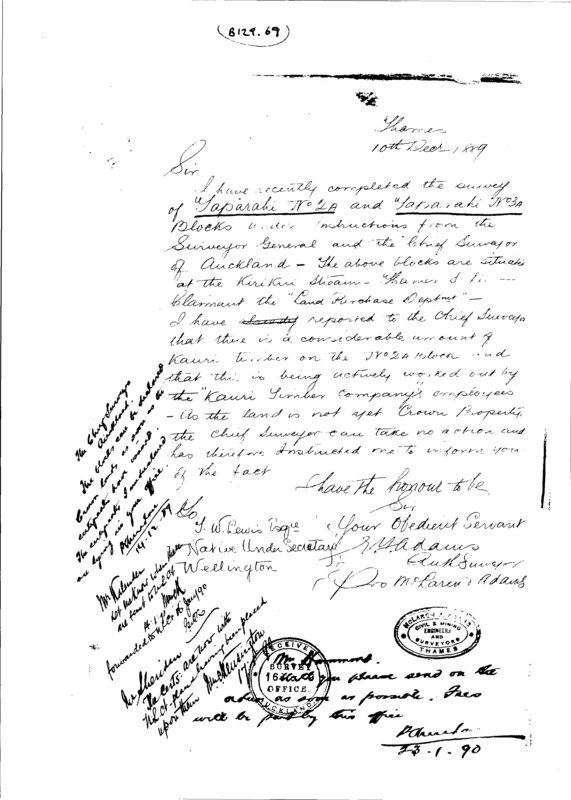 (B127.69)
Thames
10th Decr 1889
Sir
I have recently completed the survey
of "Taparahi No 2A and "Taparahi No 3A
Blocks under instructions from the
Surveyor General and the Chief Surveyor
of Auckland - The above blocks are situate
at the Kirikiri Stream - Thames
Claimant the "Land Purchase Deptmt" -
I have already reported to the Chief Surveyor
that there is a considerable amount of
Kauri timber on the No 2A block and
that this is being actively worked out by
the "Kauri Timber Company's employees
- As the land is not yet Crown Property,
the Chief Surveyor can take no action and
has therefore instructed me to inform you
of the fact
I have the honour to be
Sir
Your Obedient Servant
Adams
Auth Surveyor
Pro McLaren & Adams
To
T. W. Lewis Esqre
Native Under Secretary
Wellington
The Chief Surveyor
Auckland.
The blocks can be declared
Crown lands as soon as
are lying in your office.
14.12.89
let me know when
are sent to
forwarded to
Mr Sheridan
The Certs. are now with
N.L.Ct. plans having been placed
upon them
RECEIVED
SURVEY
16
OFFICE.
AUCKLAND.
CIVIL & MINING
ENGINEERS
AND
SURVEYORS
THAMES
Mr Hammond.
you please send on the
orders as soon as possible. Fees
will be paid by this office
23-1-90